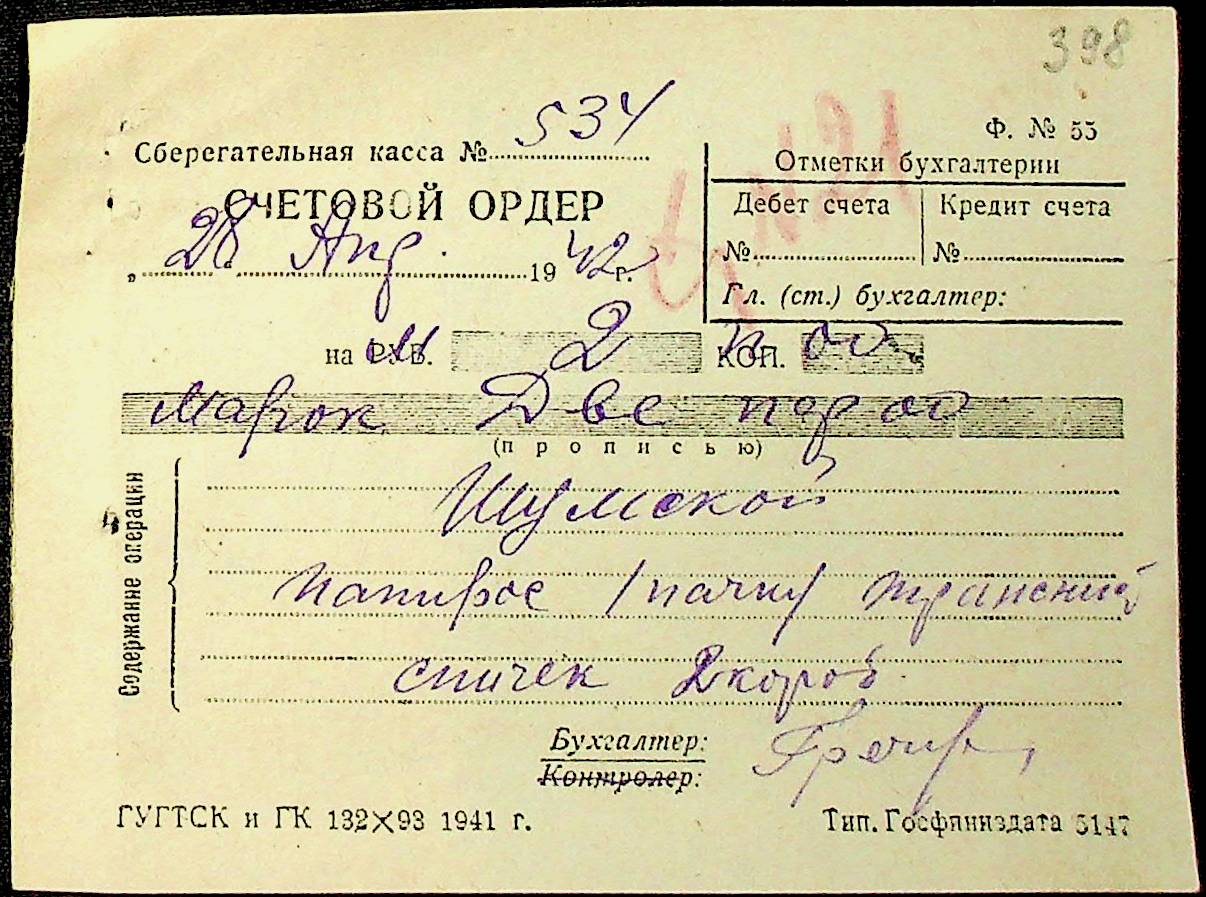 398
Ф. № 55
Сберегательная касса № 534
СЧЕТОВОЙ ОРДЕР
„28“ Авг. 1942 г.
Отметки бухгалтерии
Дебет счета Кредит счета
№ №
Гл. (ст.) бухгалтер:
на РУБ. 2 КОП. 00
Марок Две пф 00
(прописью)
Содержание операции
Шумской
папирос /пачки/
спичек 2 короб.
Бухгалтер:
Контролер:
ГУГТСК и ГК 132×93 1941 г.
Тип. Госфиниздата 5147